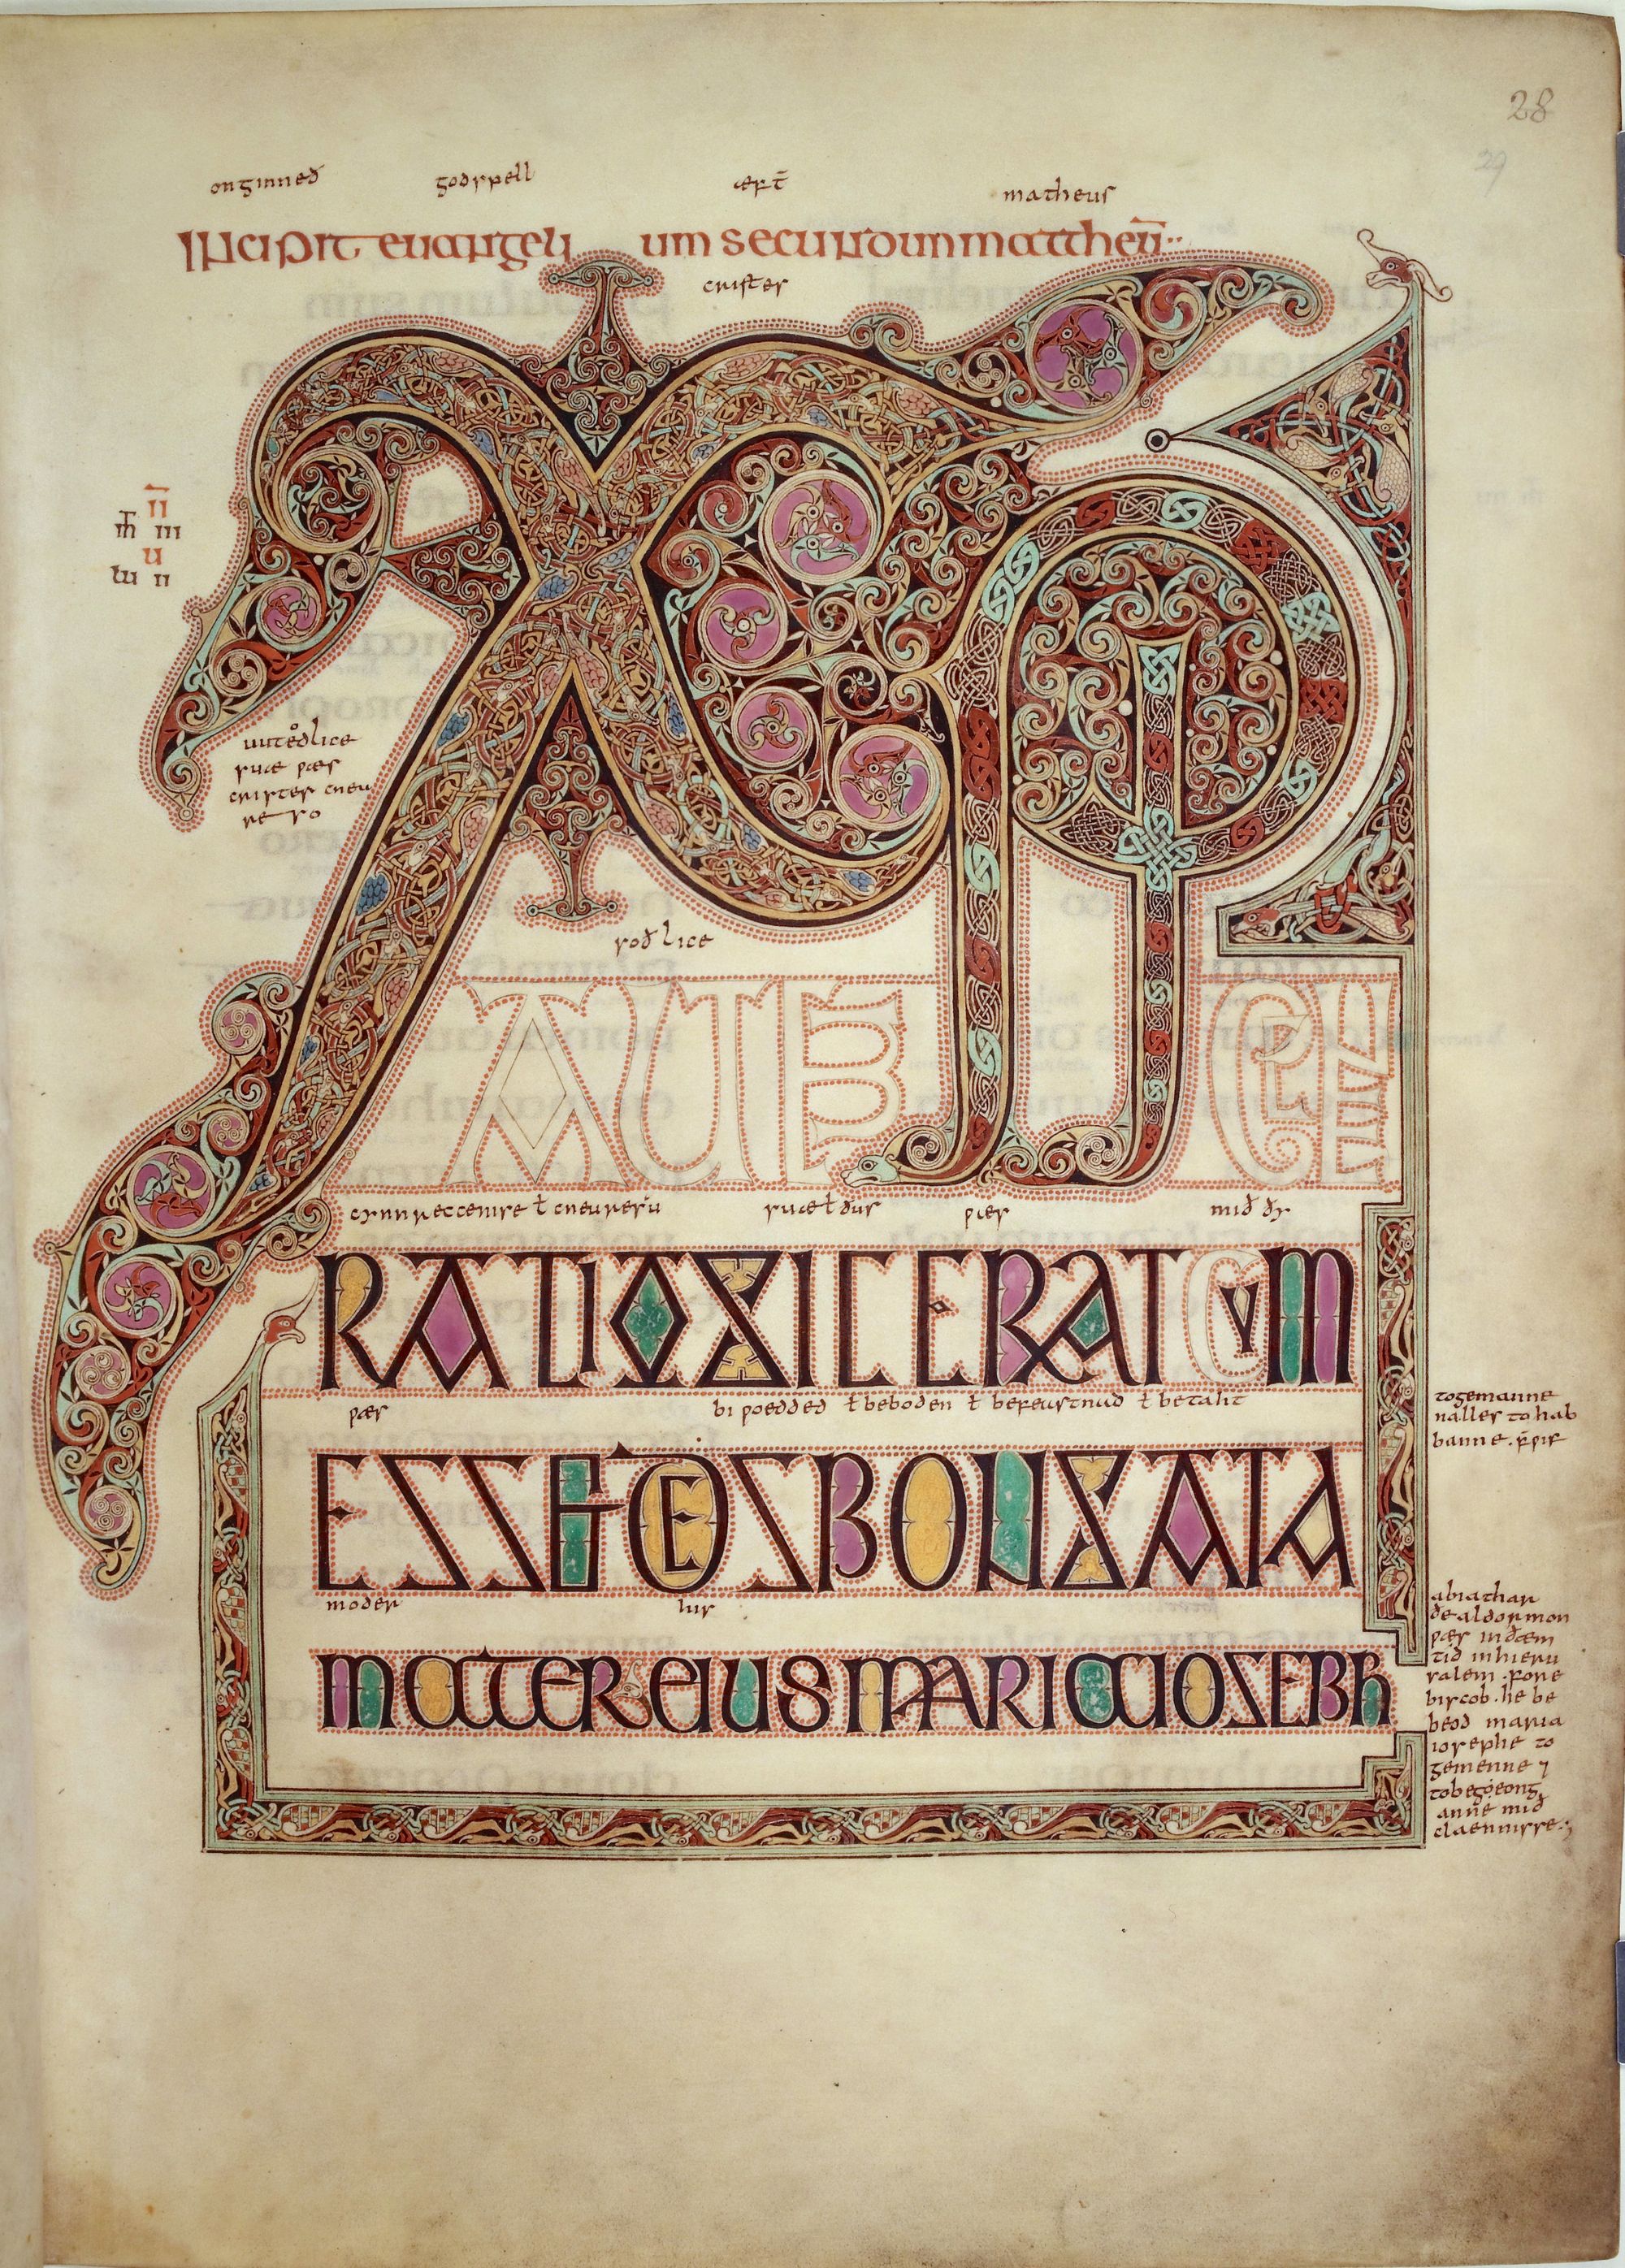 28
29
onginneð godspell æft̄ matheus
incipit euangeli um secundum mattheū
cristes
XPI
II
m̄ III
U
lu II
uutoðlice
suæ wæs
cristes cneu
reso
soðlice
AUTEM GE
cynnreccenisse ɫ cneuresū suæ ɫ ðus wæs mið ðy
NERATIO SIC ERAT CUM
wæs bi woedded ɫ beboden ɫ befeastnad ɫ betaht
ESSET DESPONSATA
moder his
MATER EIUS MARIA IOSEBH
togemanne
nalles to hab
banne
abiathar
ðe aldormon
wæs in ðæm
tid in hieru
salem
biscob he be
beod maria
iosephe to
gemenne ⁊
to begeong
anne mið
claennisse